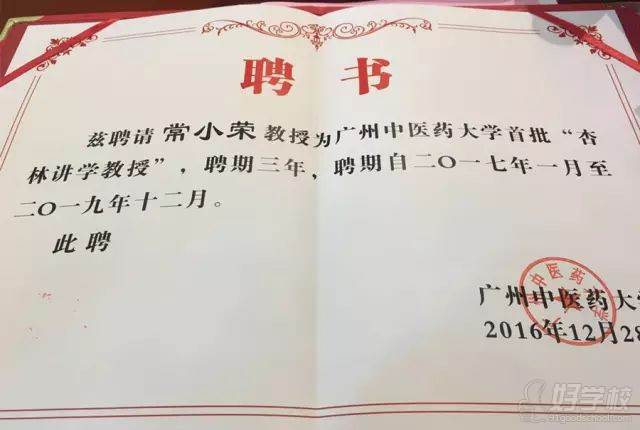 聘书
兹聘请常小荣教授为广州中医药大学首批“杏
林讲学教授”，聘期三年，聘期自二〇一七年一月至
二〇一九年十二月。
此聘
广州中医药大学
2016年12月28
好学校
www.91goodschool.com